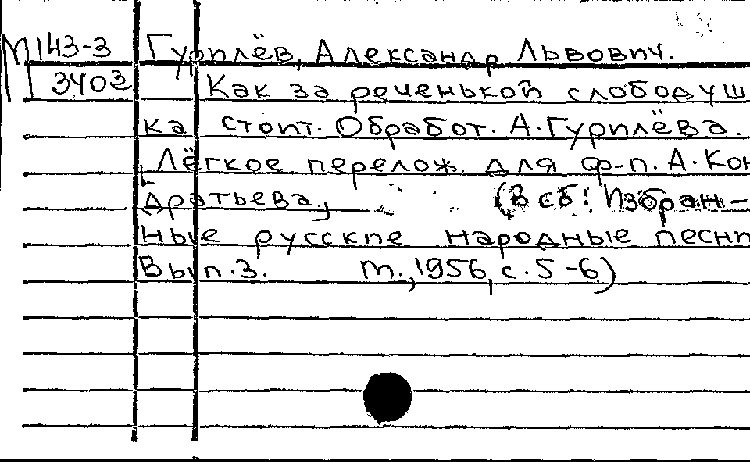 М 143-3 Гурилёв, Александр Львович.
3403 Как за реченькой слободуш
ка стоит. Обработ. А. Гурилёва.
Лёгкое перелож. для ф-п. А. Кон
дратьева, (В сб: Избран-
ные русские народные песни
Вып. 3. М., 1956, с. 5-6)